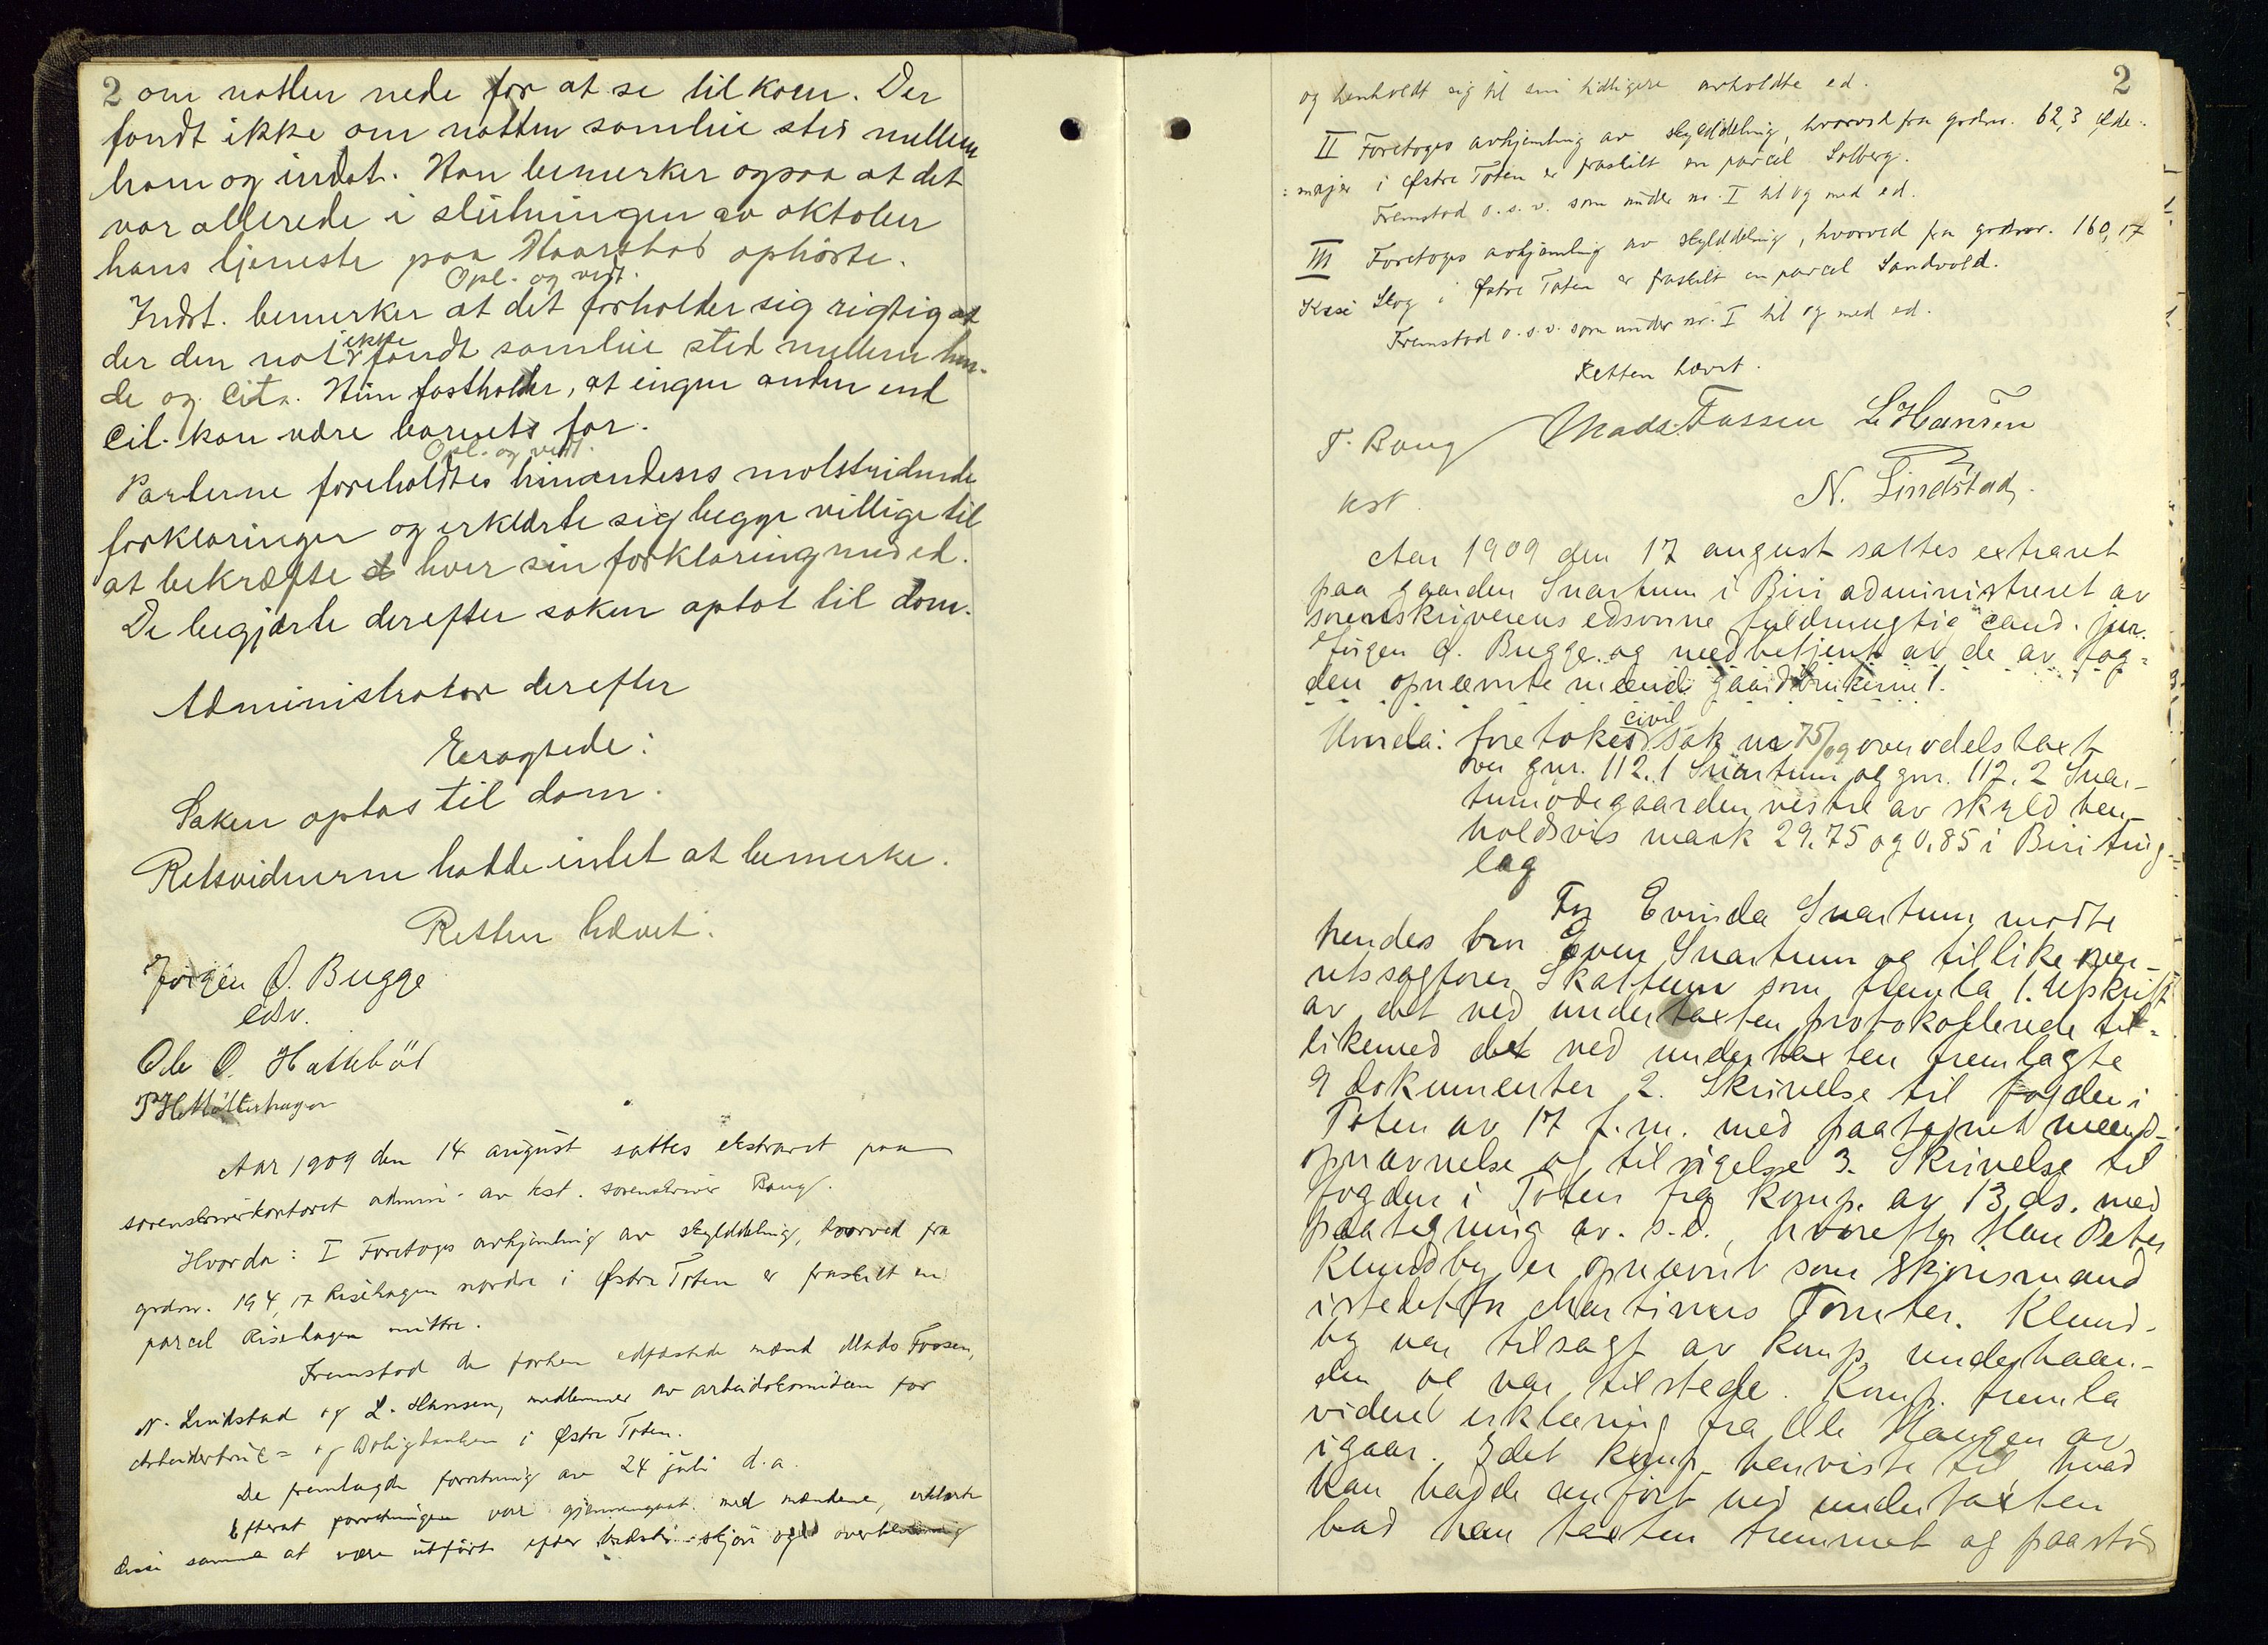 2 om natten nede for at se til koen. Der
fandt ikke om natten samleie sted mellem
ham og indst. Han bemerker ogsaa at det
var allerede i slutningen av oktober
hans tjeneste paa Haarstad ophørte.
Opl. og vedt.
Indst. bemerker at det forholder sig rigtig at
der den nat ikke fandt samleie sted mellem hen-
de og cita. Hun fastholder, at ingen anden end
cit. kan være barnets far.
Opl. og vedt.
Parterne foreholdtes hinandens motstridende
forklaringer og erklærte sig begge villige til
at bekræfte hver sin forklaring med ed.
De begjærte derefter saken optat til dom.
Administrator derefter
Eragtede:
Saken optas til dom.
Retsvidnerne hadde intet at bemerke.
Retten hævet.
Jørgen O. Bugge
edsv.
Ole O. Hattebøl
Aar 1909 den 14 august sattes ekstraret paa
sorenskriverkontoret admini- av kst. sorenskriver Bang.
Hvorda: I Foretoges avhjemling av skylddeling, hvorved fra
grdnr. 194,17 Risehagen nordre i Østre Toten er fraskilt en
parcel Risehagen mittre.
Fremstod de forhen edfæstede mænd Mads Fossen,
N. Lindstad og L. Hansen, medlemmer av arbeidskomiteen for
Arbeiderbruk- og Boligbanken i Østre Toten.
De fremlagde forretning av 24 juli d.a.
Efterat forretningen var gjennemgaat med mændene, erklærte
disse samme at være utført efter bedste skjøn og overbevisning
2
og henholdt sig til sin tidligere avholdte ed.
II Foretoges avhjemling av skylddeling, hvorved fra grdnr. 62,3 Øde-
majer i Østre Toten er fraskilt en parcel Solberg.
Fremstod o.s.v. som under nr. I til og med ed.
III Foretoges avhjemling av skylddeling, hvorved fra grdnr. 160,17
Skog i Østre Toten er fraskilt en parcel Sandvold.
Fremstod o.s.v. som under nr. I til og med ed.
Retten hævet.
F. Bang Mads Fossen L Hansen
kst. N. Lindstad.
Aar 1909 den 17 august sattes extraret
paa gaarden Svartum i Biri administreret av
sorenskriverens edsvorne fuldmægtig cand. jur.
Jørgen O. Bugge og medbetjent av de av fog-
den opnævnte mænd gaardbrukerne 1.
Hvorda: foretokes civil sak nr 75/09 overodelstaxt
over gnr. 112.1 Svartum og gnr. 112.2 Svar-
tumødegaarden vestre av skyld hen-
holdsvis mark 29.75 og 0.85 i Biri ting-
lag
For Evinda Svartum møtte
hendes bror Even Svartum og tillike over-
retssagfører Skattum som fremla 1. Utskrift
av det ved undertaxten protokollerede til-
likemed det ved undertaxten fremlagte
9 dokumenter 2. Skrivelse til fogden i
Toten av 17 f.m. med paategnet mænd-
opnævnelse og tilsigelse 3. Skrivelse til
fogden i Toten fra komp. av 13 ds. med
paategning av s.d., hvorefter Hans Peter
Klundby er opnævnt som skjønsmand
istedetfor Martinus Tomter. Klund-
by var tilsagt av komp. underhaan-
den og var tilstede. Komp. fremla
videre erklæring fra Ole Haugen av
igaar. Idet komp. henviste til hvad
han hadde anført ved undertaxten
bad han taxten fremmet og paastod